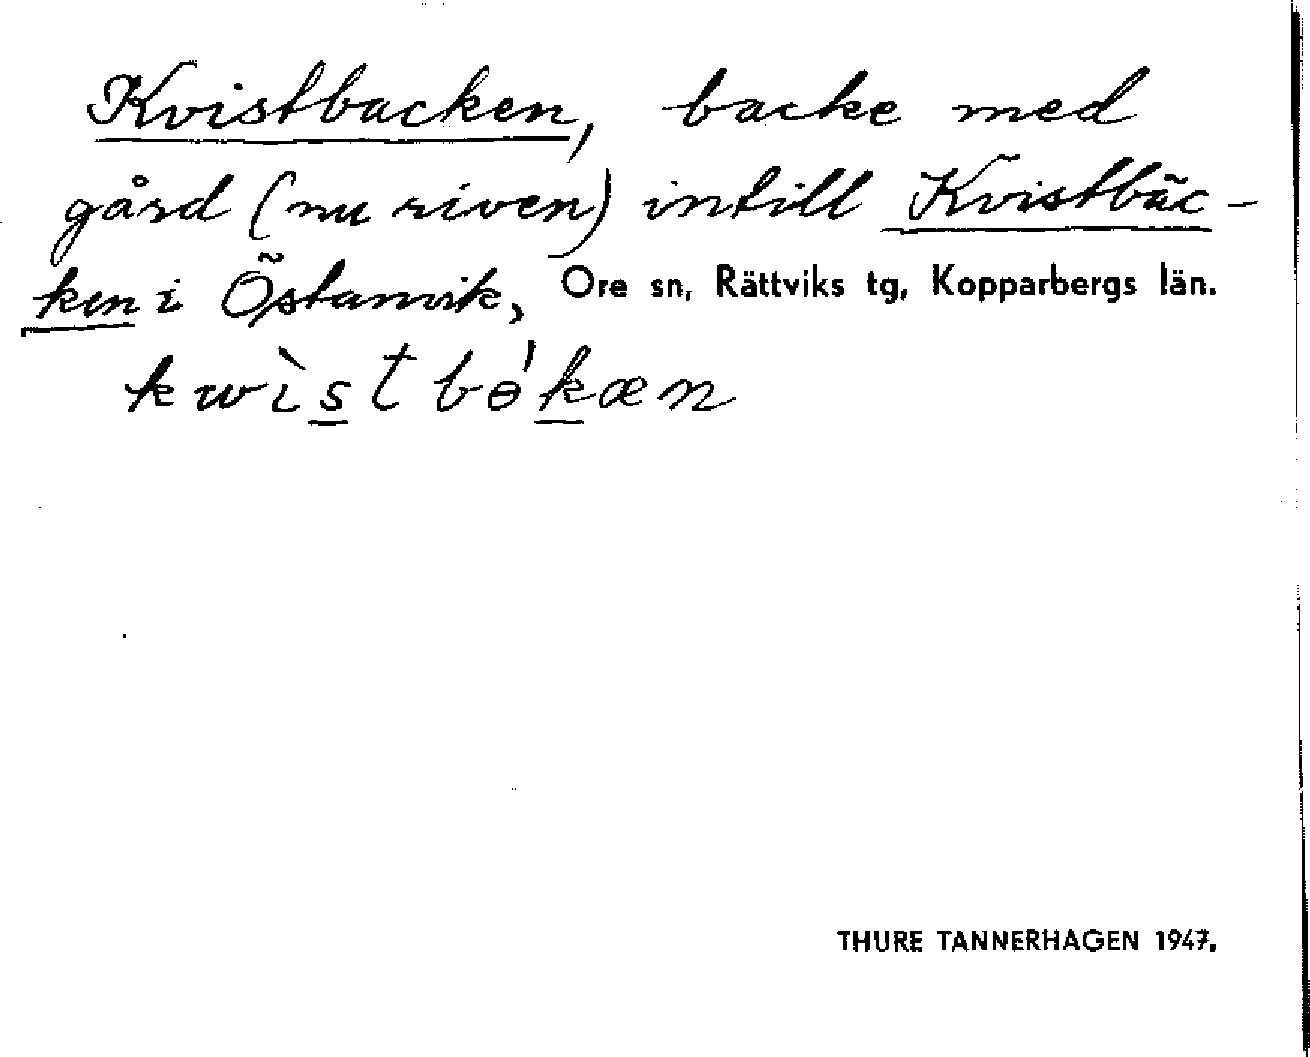 Kvistbacken, backe med
gård (nu riven) intill Kvistbäc-
ken i Östanvik, Ore sn, Rättviks tg, Kopparbergs län.
kwìstbɵ́kæn
THURE TANNERHAGEN 1947.